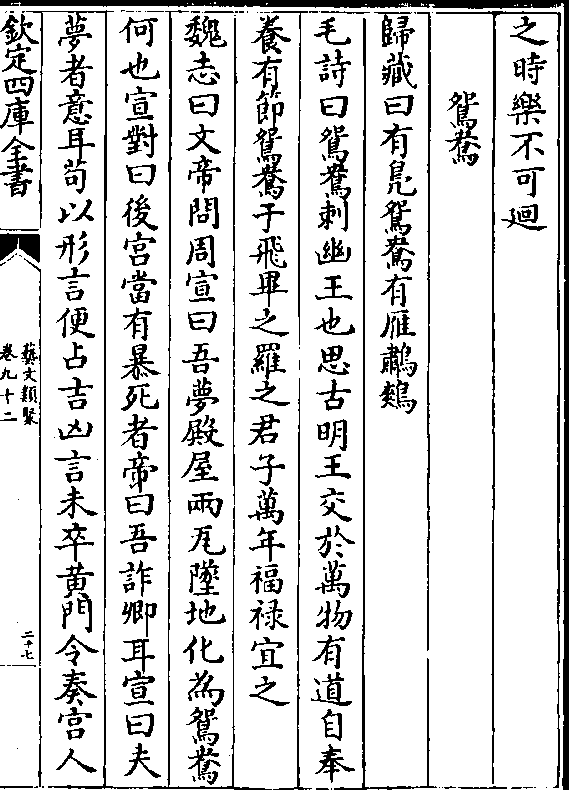 之時樂不可迴
鴛鴦
歸藏曰有鳧鴛鴦有雁鷫鷞
毛詩曰鴛鴦刺幽王也思古明王交於萬物有道自奉
養有節鴛鴦于飛畢之羅之君子萬年福禄宜之
魏志曰文帝問周宣曰吾夢殿屋兩瓦墜地化為鴛鴦
何也宣對曰後宮當有暴死者帝曰吾詐卿耳宣曰夫
夢者意耳苟以形言便占吉凶言未卒黄門令奏宫人
欽定四庫全書
藝文類聚
卷九十二
二十七